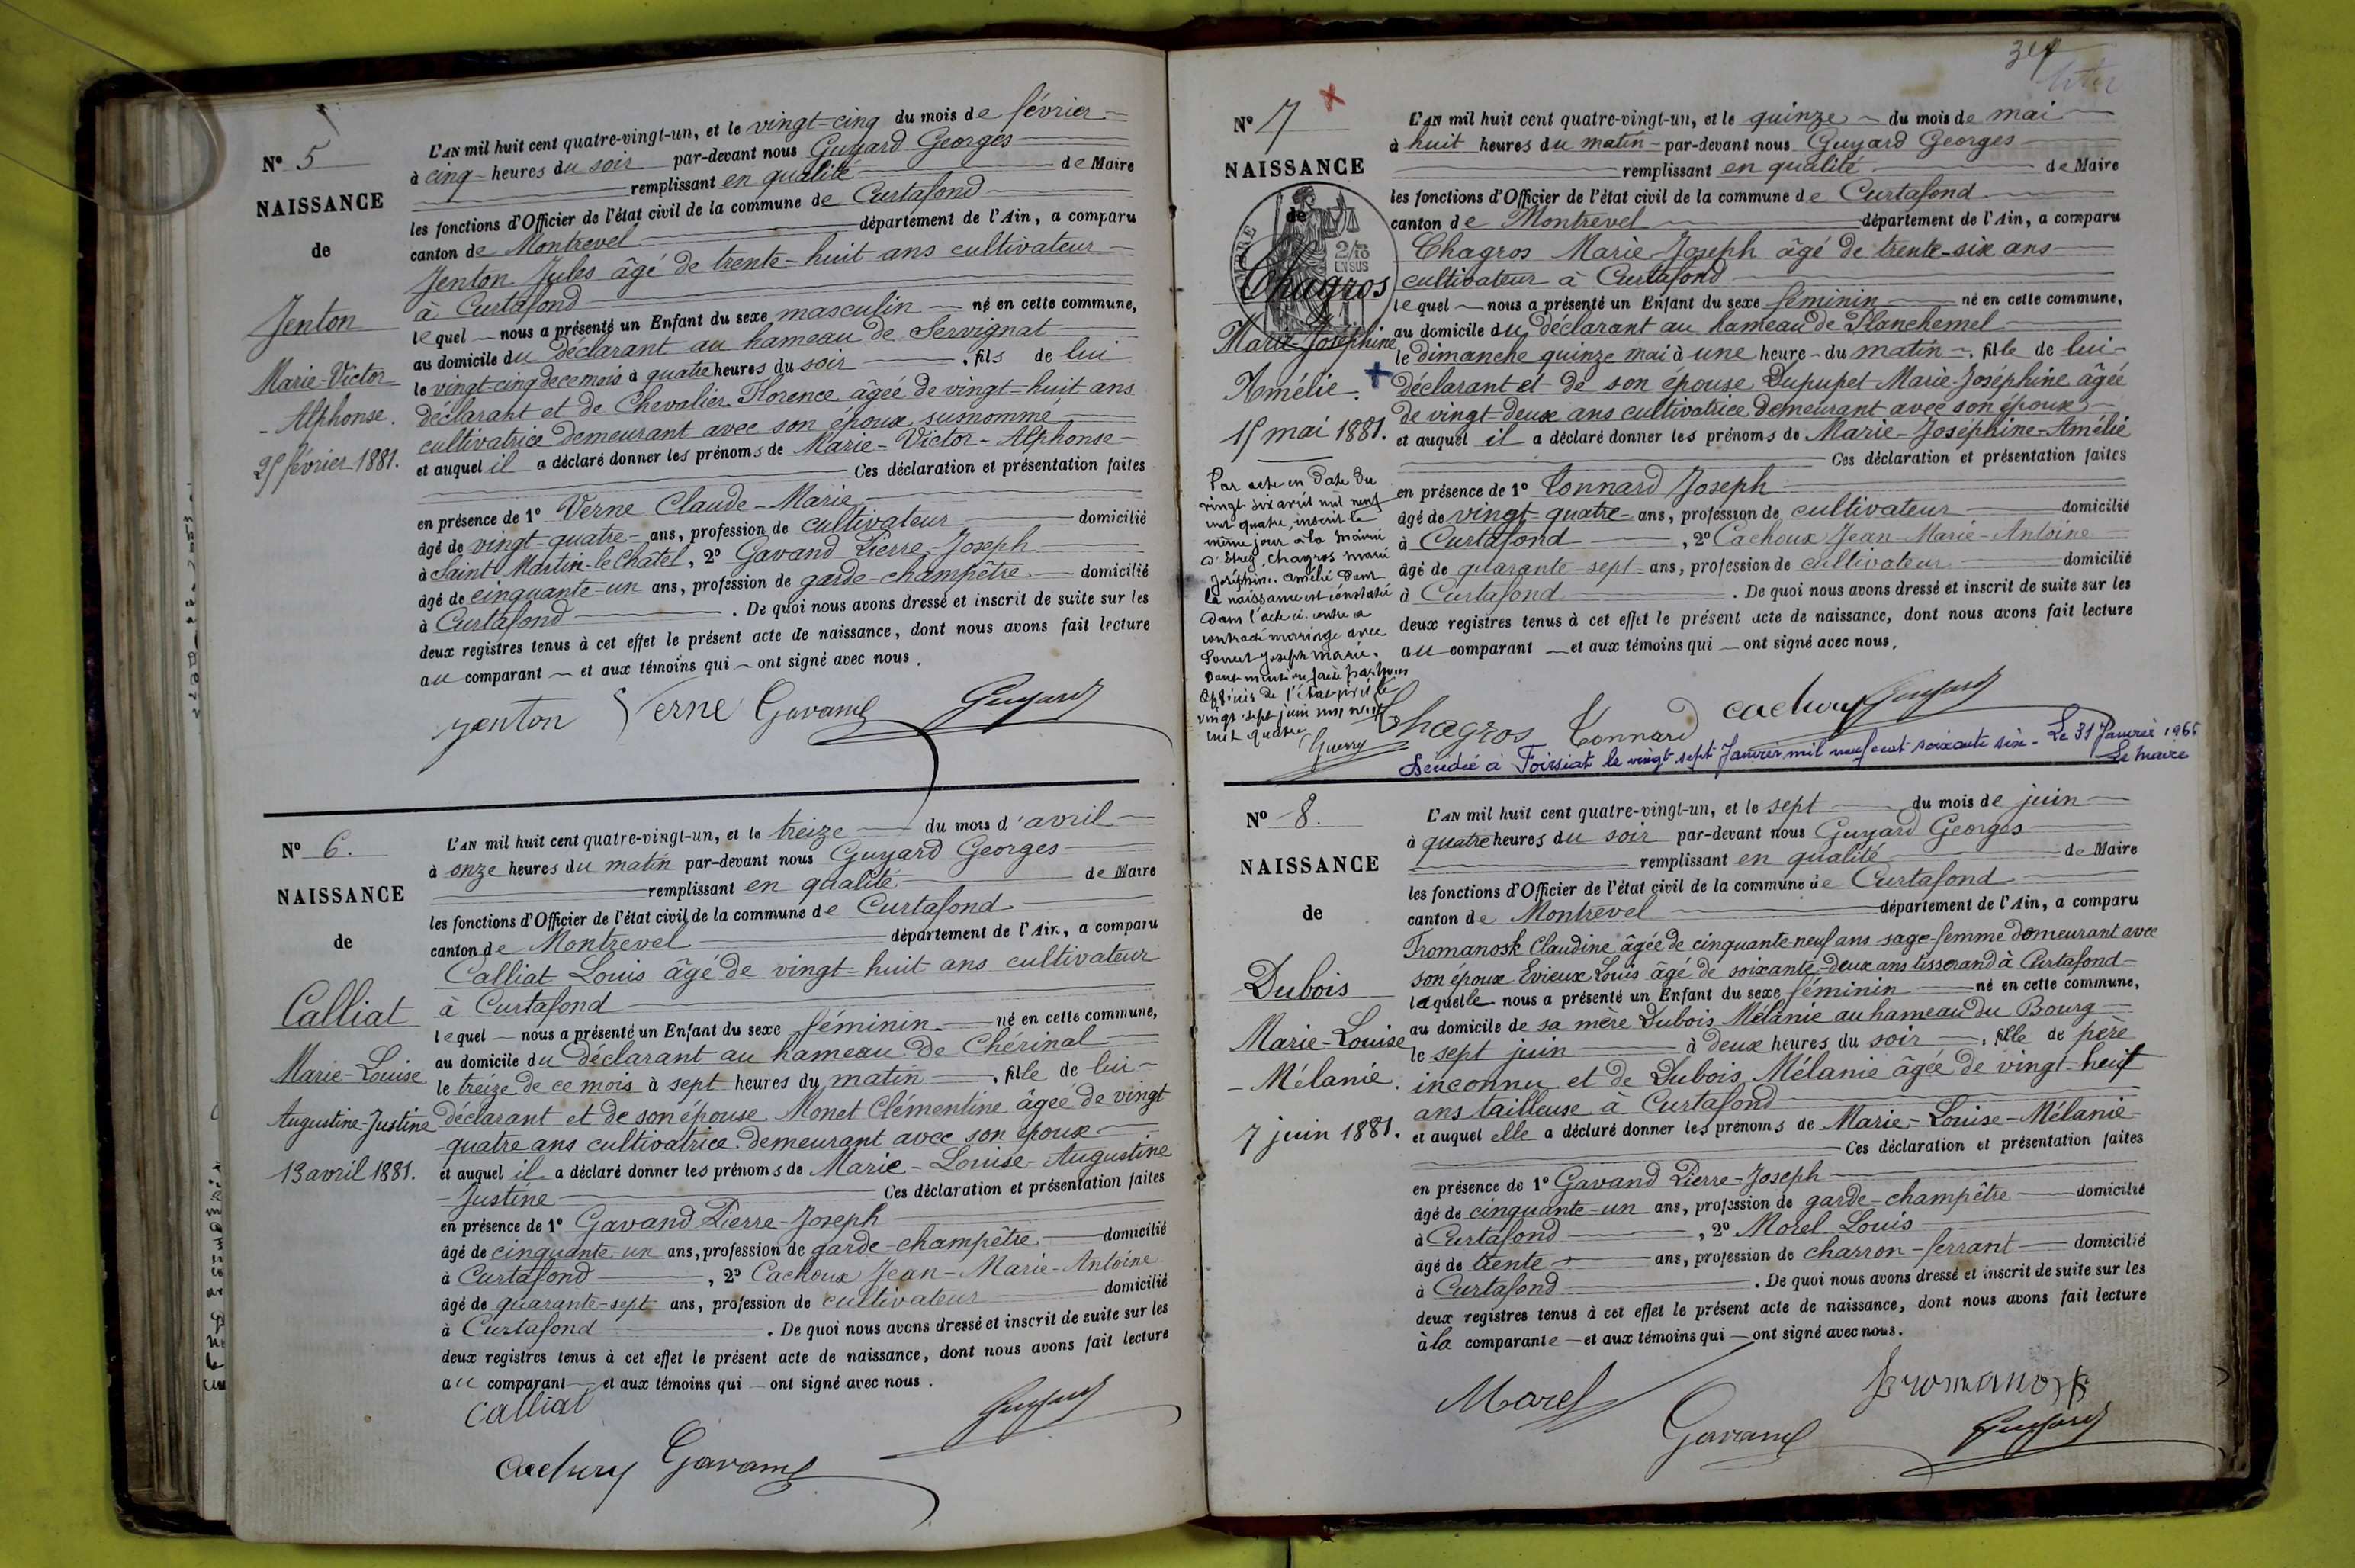 N° 5
NAISSANCE
de
Jenton
Marie-Victor
- Alphonse.
25 février 1881.
L'AN mil huit cent quatre-vingt-un, et le vingt-cinq du mois de février
à cinq heures du soir par-devant nous Guyard Georges
remplissant en qualité de Maire
les fonctions d'Officier de l'état civil de la commune de Curtafond
canton de Montrevel département de l'Ain, a comparu
Jenton Jules âgé de trente-huit ans cultivateur
à Curtafond
lequel nous a présenté un Enfant du sexe masculin né en cette commune,
au domicile du déclarant au hameau de Servignat
le vingt-cinq de ce mois à quatre heures du soir , fils de lui
déclarant et de Chevalier Florence âgée de vingt-huit ans
cultivatrice demeurant avec son époux susnommé
et auquel il a déclaré donner les prénoms de Marie-Victor-Alphonse
Ces déclaration et présentation faites
en présence de 1° Verne Claude-Marie
âgé de vingt-quatre ans, profession de cultivateur domicilié
à Saint Martin-le Châtel, 2° Gavand Pierre-Joseph
âgé de cinquante-un ans, profession de garde-champêtre domicilié
à Curtafond . De quoi nous avons dressé et inscrit de suite sur les
deux registres tenus à cet effet le présent acte de naissance, dont nous avons fait lecture
au comparant et aux témoins qui ont signé avec nous.
Jenton Verne Gavand Guyard
N° 6.
NAISSANCE
de
Calliat
Marie-Louise
Augustine-Justine
13 avril 1881.
L'AN mil huit cent quatre-vingt-un, et le treize du mois d'avril
à onze heures du matin par-devant nous Guyard Georges
remplissant en qualité de Maire
les fonctions d'Officier de l'état civil de la commune de Curtafond
canton de Montrevel département de l'Ain, a comparu
Calliat Louis âgé de vingt-huit ans cultivateur
à Curtafond
lequel nous a présenté un Enfant du sexe féminin né en cette commune,
au domicile du déclarant au hameau de Chérinal
le treize de ce mois à sept heures du matin , fille de lui
déclarant et de son épouse Monet Clémentine âgée de vingt
quatre ans cultivatrice demeurant avec son époux
et auquel il a déclaré donner les prénoms de Marie-Louise-Augustine
- Justine Ces déclaration et présentation faites
en présence de 1° Gavand Pierre-Joseph
âgé de cinquante-un ans, profession de garde-champêtre domicilié
à Curtafond , 2° Cachoux Jean-Marie-Antoine
âgé de quarante-sept ans, profession de cultivateur domicilié
à Curtafond . De quoi nous avons dressé et inscrit de suite sur les
deux registres tenus à cet effet le présent acte de naissance, dont nous avons fait lecture
au comparant et aux témoins qui ont signé avec nous.
Calliat Guyard
Gavand
N° 7
NAISSANCE
de
2/10
EN SUS
Chagros
Marie-Joséphine
Amélie.
15 mai 1881.
Par acte en date du
vingt six avril mil neuf
cent quatre, inscrit le
même jour à la Mairie
d'Etrez, Chagros Marie
Joséphine Amélie dont
la naissance est constatée
dans l'acte ci-contre a
contracté mariage avec
Joseph Marie.
Dont mention faite par nous
Officier de l'Etat-civil le
vingt-sept juin mil neuf
cent quatre
Guerry
L'AN mil huit cent quatre-vingt-un, et le quinze du mois de mai
à huit heures du matin par-devant nous Guyard Georges
remplissant en qualité de Maire
les fonctions d'Officier de l'état civil de la commune de Curtafond
canton de Montrevel département de l'Ain, a comparu
Chagros Marie-Joseph âgé de trente-six ans
cultivateur à Curtafond
lequel nous a présenté un Enfant du sexe féminin né en cette commune,
au domicile du déclarant au hameau de Planchemel
le dimanche quinze mai à une heure du matin , fille de lui
déclarant et de son épouse Dupupet Marie-Joséphine âgée
de vingt-deux ans cultivatrice demeurant avec son époux
et auquel il a déclaré donner les prénoms de Marie-Joséphine-Amélie
Ces déclaration et présentation faites
en présence de 1° Tonnard Joseph
âgé de vingt-quatre ans, profession de cultivateur domicilié
à Curtafond , 2° Cachoux Jean-Marie-Antoine
âgé de quarante-sept ans, profession de cultivateur domicilié
à Curtafond . De quoi nous avons dressé et inscrit de suite sur les
deux registres tenus à cet effet le présent acte de naissance, dont nous avons fait lecture
au comparant et aux témoins qui ont signé avec nous.
Chagros Tonnard Guyard
Décédée à Foissiat le vingt sept Janvier mil neuf cent soixante six - Le 31 Janvier 1966
Le maire
N° 8.
NAISSANCE
de
Dubois
Marie-Louise
- Mélanie.
7 juin 1881.
L'AN mil huit cent quatre-vingt-un, et le sept du mois de juin
à quatre heures du soir par-devant nous Guyard Georges
remplissant en qualité de Maire
les fonctions d'Officier de l'état civil de la commune de Curtafond
canton de Montrevel département de l'Ain, a comparu
Fromanosk Claudine âgée de cinquante-neuf ans sage-femme demeurant avec
son époux Evieux Louis âgé de soixante-deux ans tisserand à Curtafond
laquelle nous a présenté un Enfant du sexe féminin né en cette commune,
au domicile de sa mère Dubois Mélanie au hameau du Bourg
le sept juin à deux heures du soir , fille de père
inconnu et de Dubois Mélanie âgée de vingt-
ans tailleuse à Curtafond
et auquel elle a déclaré donner les prénoms de Marie-Louise-Mélanie
Ces déclaration et présentation faites
en présence de 1° Gavand Pierre-Joseph
âgé de cinquante-un ans, profession de garde-champêtre domicilié
à Curtafond , 2° Morel Louis
âgé de trente ans, profession de charron-ferrant domicilié
à Curtafond . De quoi nous avons dressé et inscrit de suite sur les
deux registres tenus à cet effet le présent acte de naissance, dont nous avons fait lecture
à la comparante et aux témoins qui ont signé avec nous.
Morel Fromanosk
Gavand Guyard